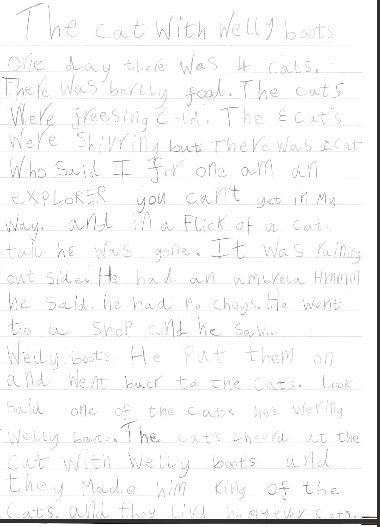 The cat with Welly boots
one day there was 4 cats.
There was berlly food. The cats
Were freesing cold. The & cats
Were Shivring but There was & cat
Who Said I for one am an
EXPLORER you can't get in My
Way. and in a Flick of a cat
tail he was gone. It was raining
out side. He had an umbrela HMMM
he said. he had no choys. He went
to a Shop and he Saw...
Welly boots. He Put them on
and Went back to the cats. Look
Said one of the cats he's Wering
Welly boots. The cats cheerd at the
Cat With Welly boots and
they Made him King Of the
Cats. and they livd happyever